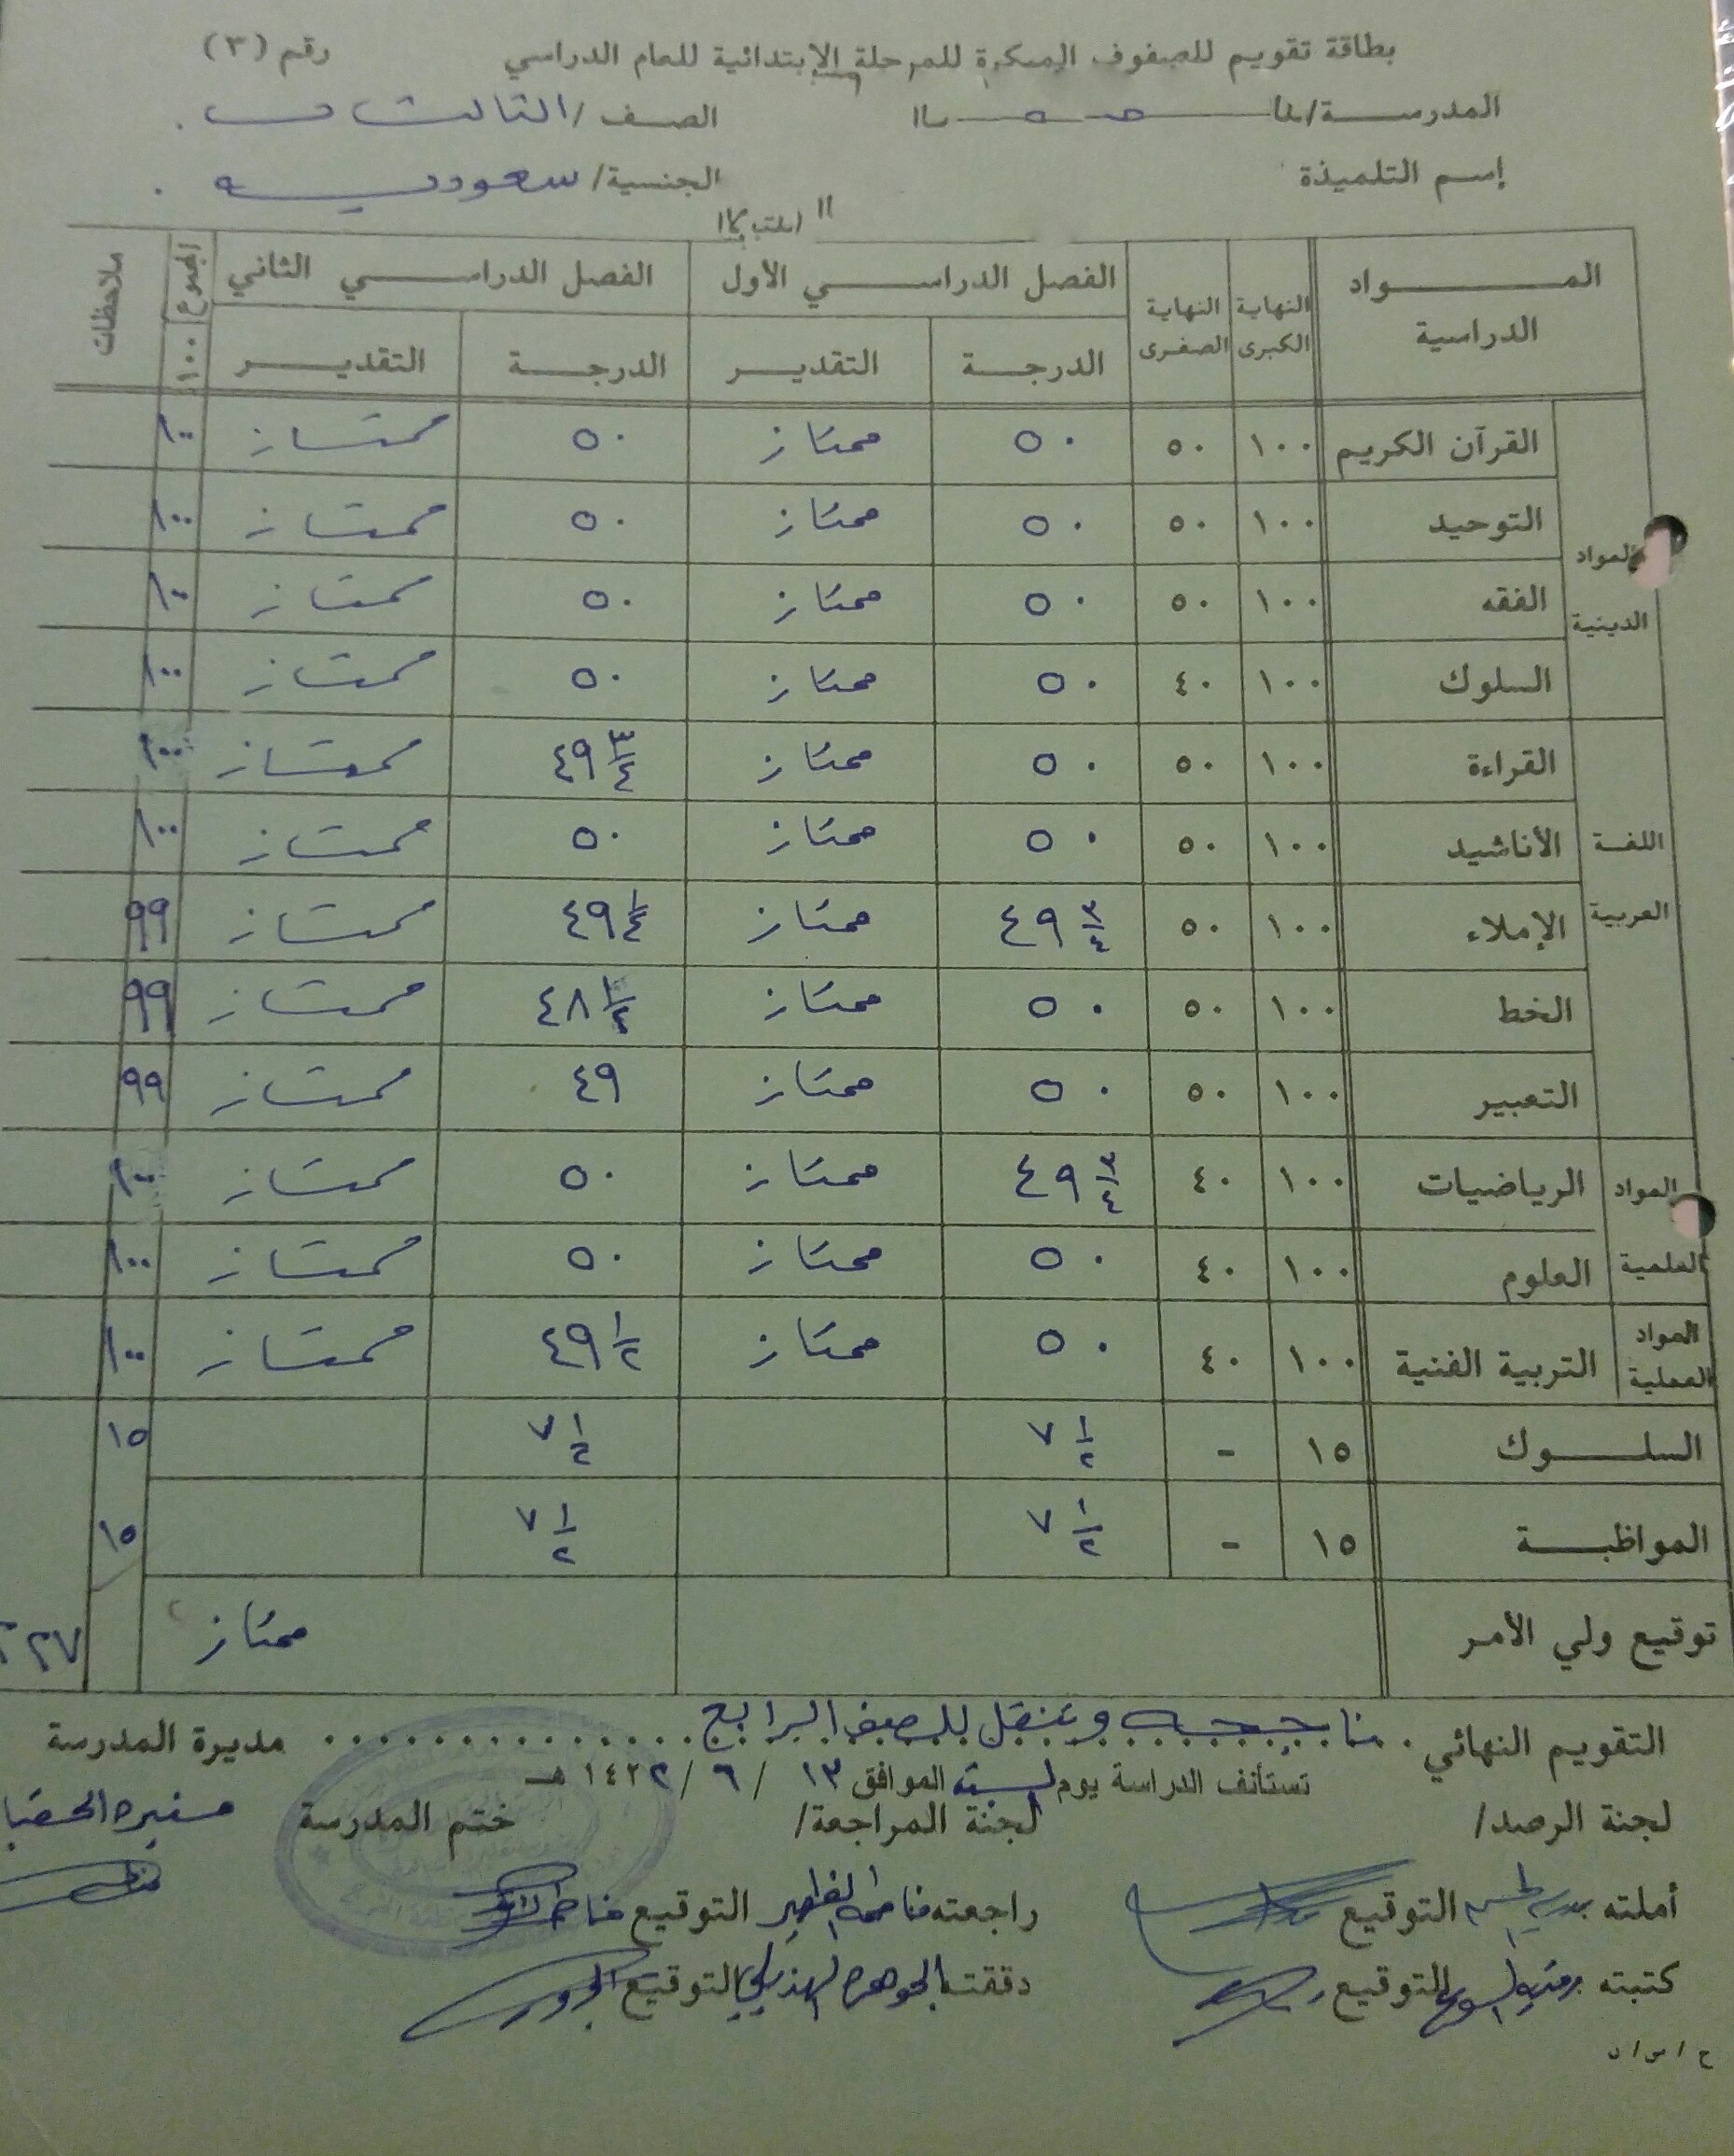 بطاقة تقويم للصفوف المبكرة للمرحلة الإبتدائية للعام الدراسي رقم (٣)
المدرسة/ الصف/ الثالث ب
إسم التلميذة الجنسية/ سعوديه
المواد الدراسية النهاية الكبرى النهاية الصغرى الفصل الدراسي الأول الفصل الدراسي الثاني المجموع ١٠٠ ملاحظات
الدرجة التقدير الدرجة التقدير
المواد الدينية
القرآن الكريم ١٠٠ ٥٠ ٥٠ ممتاز ٥٠ ممتاز ١٠٠
التوحيد ١٠٠ ٥٠ ٥٠ ممتاز ٥٠ ممتاز ١٠٠
الفقه ١٠٠ ٥٠ ٥٠ ممتاز ٥٠ ممتاز ١٠٠
السلوك ١٠٠ ٤٠ ٥٠ ممتاز ٥٠ ممتاز ١٠٠
اللغة العربية
القراءة ١٠٠ ٥٠ ٥٠ ممتاز ٤٩ ٣/٤ ممتاز ١٠٠
الأناشيد ١٠٠ ٥٠ ٥٠ ممتاز ٥٠ ممتاز ١٠٠
الإملاء ١٠٠ ٥٠ ٤٩ ٣/٤ ممتاز ٤٩ ١/٤ ممتاز ٩٩
الخط ١٠٠ ٥٠ ٥٠ ممتاز ٤٨ ١/٢ ممتاز ٩٩
التعبير ١٠٠ ٥٠ ٥٠ ممتاز ٤٩ ممتاز ٩٩
المواد العلمية
الرياضيات ١٠٠ ٤٠ ٤٩ ٣/٤ ممتاز ٥٠ ممتاز ١٠٠
العلوم ١٠٠ ٤٠ ٥٠ ممتاز ٥٠ ممتاز ١٠٠
المواد العملية
التربية الفنية ١٠٠ ٤٠ ٥٠ ممتاز ٤٩ ١/٢ ممتاز ١٠٠
السلوك ١٥ - ٧ ١/٢ ٧ ١/٢ ١٥
المواظبة ١٥ - ٧ ١/٢ ٧ ١/٢ ١٥
توقيع ولي الأمر ممتاز ٢٧
التقويم النهائي ناجحه وتنقل للصف الرابع مديرة المدرسة
تستأنف الدراسة يوم السبت الموافق ١٣ / ٦ / ١٤٢٢ هـ
لجنة الرصد/ لجنة المراجعة/ ختم المدرسة
أملته التوقيع راجعته التوقيع
كتبته التوقيع دققته الجوهره التوقيع